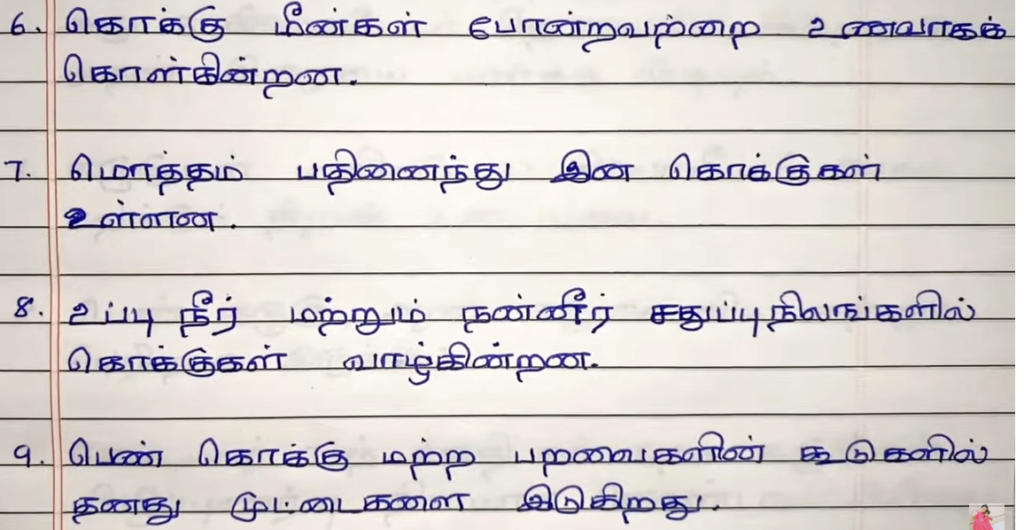 6. கொக்கு மீன்கள் போன்றவற்றை உணவாகக்
கொள்கின்றன.
7. மொத்தம் பதினைந்து இன கொக்குகள்
உள்ளன.
8. உப்பு நீர் மற்றும் நன்னீர் சதுப்பு நிலங்களில்
கொக்குகள் வாழ்கின்றன.
9. பெண் கொக்கு மற்ற பறவைகளின் கூடுகளில்
தனது முட்டைகளை இடுகிறது.